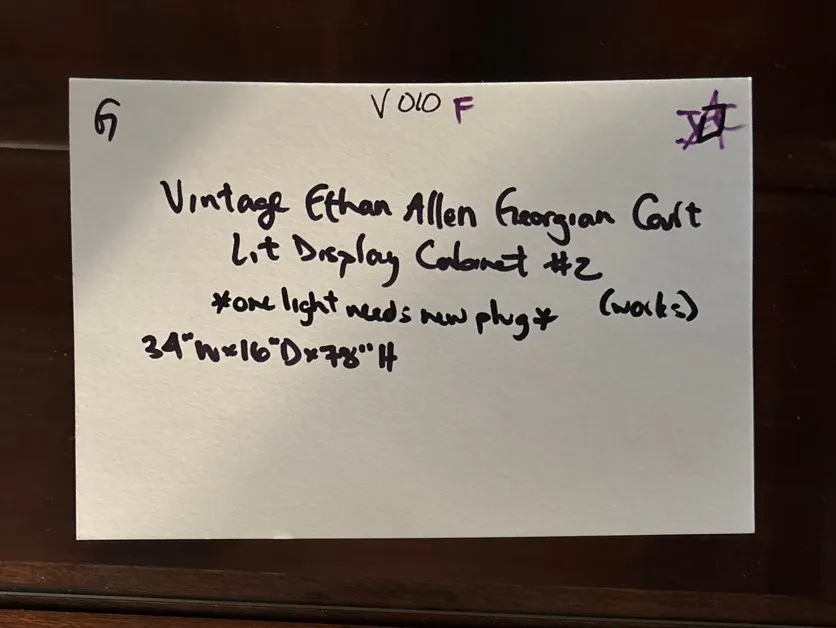 G
V 010 F
Vintage Ethan Allen Georgian Court
Lit Display Cabinet #2
*one light needs new plug* (works)
34"W×16"D×78"H